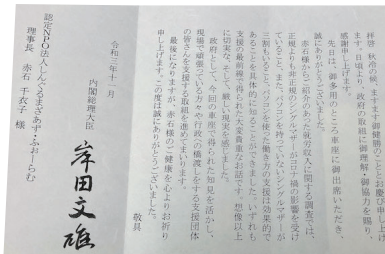 拝啓 秋冷の候、ますます御健勝のこととお慶び申し上げ
ます。日頃より、政府の取組に御理解・御協力を賜り、
感謝申し上げます。
先日は、御多用のところ車座に御出席いただき、
誠にありがとうございました。
赤石様からご紹介のあった就労収入に関する調査では、
正規よりも非正規のシングルマザーがコロナ禍の影響を受け
ていること、また、パソコンを持っていないシングルマザーが
三割もいる中で、パソコンを使った働き方の支援は効果的で
あることを具体的に知ることができました。いずれも
支援の最前線で得られた大変貴重なお話です。想像以上
に切実な、そして、厳しい現実を感じました。
政府として、今回の車座で得られた知見を活かし、
現場で頑張っている方々や行政への橋渡しをする支援団体
の皆さんを支援する取組を進めてまいります。
最後になりますが、赤石様のご健康を心よりお祈り
申し上げます。この度は誠にありがとうございました。
敬具
令和三年十二月
内閣総理大臣
岸田文雄
認定NPO法人しんぐるまざあず・ふぉーらむ
理事長 赤石 千衣子 様